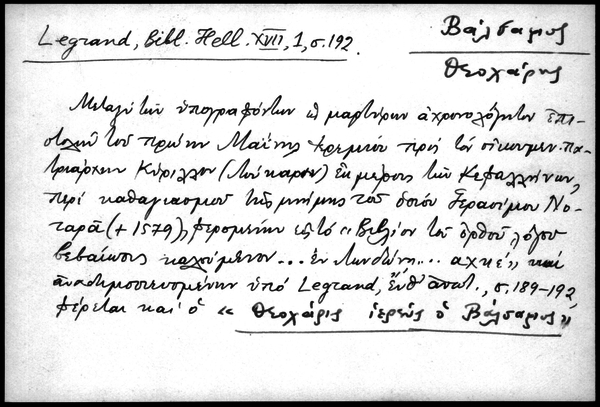 Legrand, Bibl. Hell. XVII, 1, σ. 192.
Βάλσαμος
Θεοχάρης
Μεταξὺ τῶν ὑπογραφόντων ὡς μαρτύρων ἀχρονολόγητον ἐπι-
στολὴν τοῦ πρώην Μαΐνης Ἱερεμίου πρὸς τὸν οἰκουμεν. πα-
τριάρχην Κύριλλον (Λούκαριν) ἐκ μέρους τῶν Κεφαλλήνων,
περὶ καθαγιασμοῦ τῆς μνήμης τοῦ ὁσίου Γερασίμου Νο-
ταρᾶ (+ 1579), φερομένην εἰς τὸ «Βιβλίον τοῦ ὀρθοῦ λόγου
βεβαίωσις καλούμενον... ἐν Λονδώνῃ... αχκέ» καὶ
ἀναδημοσιευομένην ὑπὸ Legrand, ἔνθ' ἀνωτ., σ. 189-192
φέρεται καὶ ὁ « Θεοχάρις ἱερεὺς ὁ Βάλσαμος»